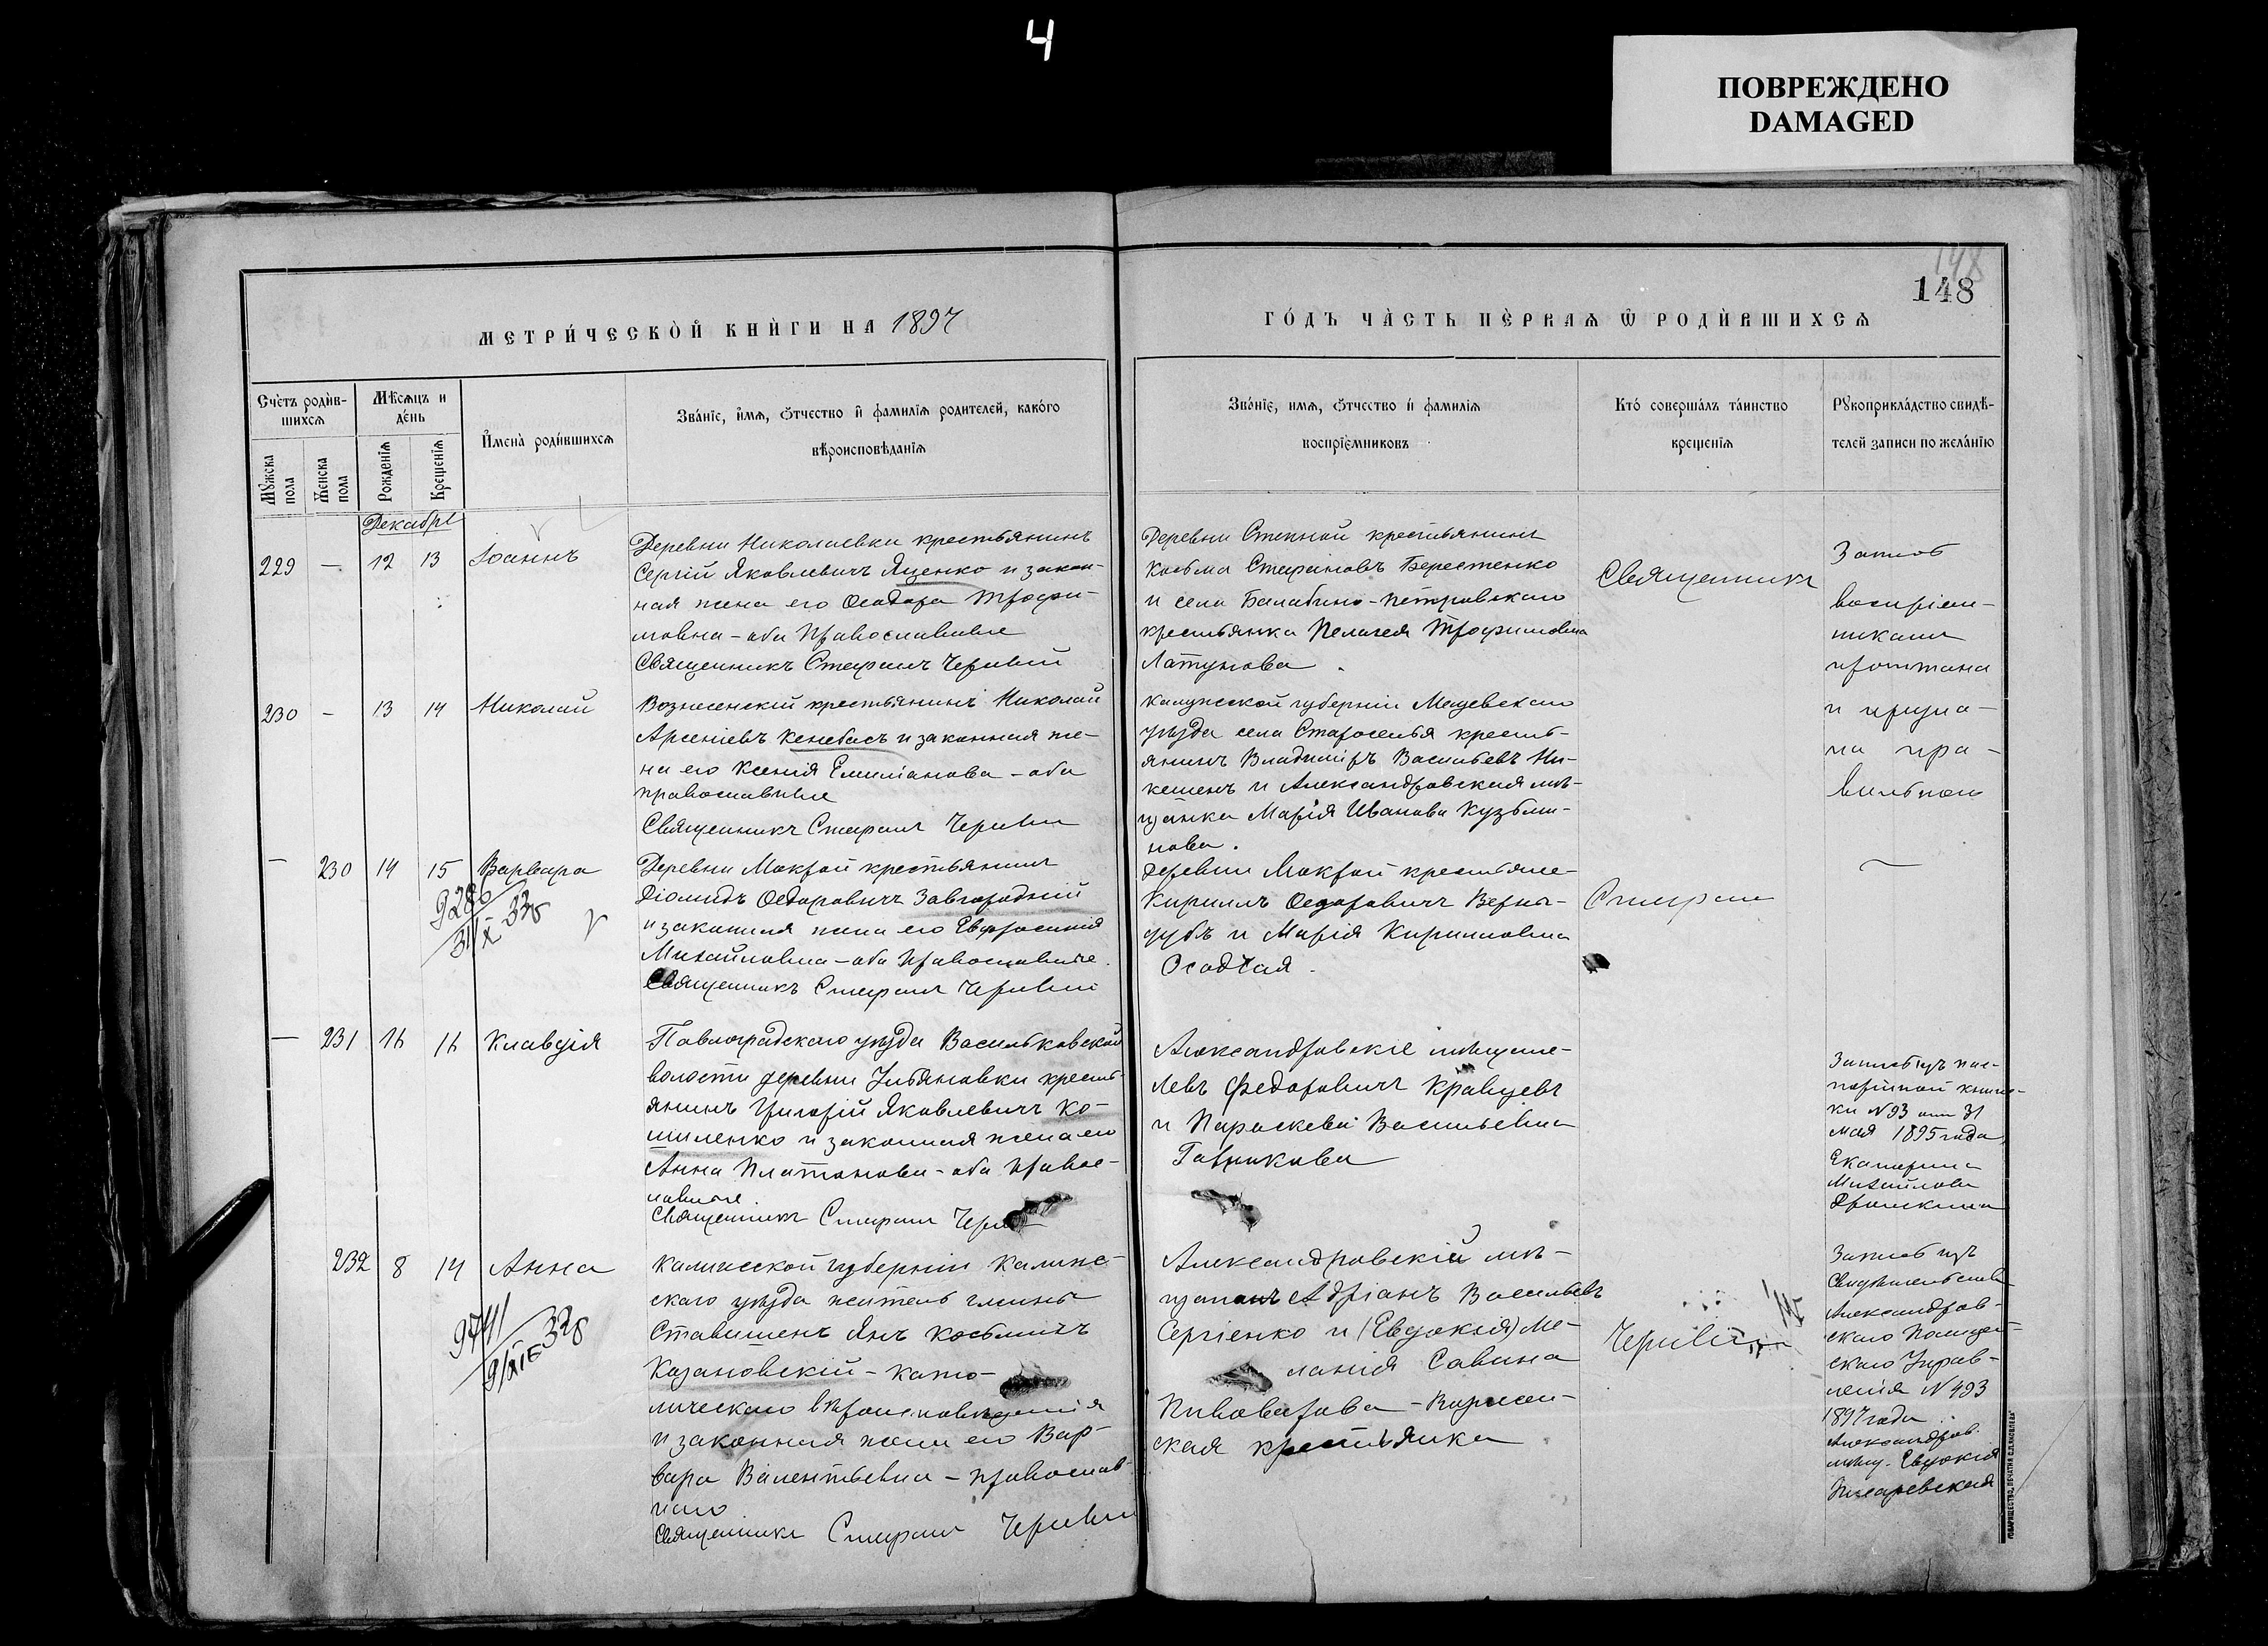 4
ПОВРЕЖДЕНО
DAMAGED
148
148
МЕТРИ́ЧЕСКОЙ КНИ́ГИ НА 1897
ГО́ДЪ ЧА́СТЬ ПЕ́РВАѦ Ѿ РОДИ́ВШИХСѦ
Счетъ роди́в-
шихсѧ
Мѣсѧцъ и
де́нь
Мꙋжска
пола
Женска
пола
Рожденїѧ
Крещенїѧ
И҆мена̀ роди́вшихсѧ
Зва́нїе, и҆мѧ, ѻ҆тчество и҆ фамилїѧ родителей, како́го
вѣроисповѣданїѧ
Зва́нїе, имѧ, ѻ҆тчество и҆ фамилїѧ
воспрїе́мниковъ
Кто̀ соверша́лъ та́инство
крещенїѧ
Рꙋкоприкла́дство свидѣ-
телей записи по жела́нїю
Декабрь
229 — 12 13 Іоаннъ
Деревни Николаевки крестьянинъ
Сергій Яковлевичъ Яценко и закон-
ная жена его Ѳеодора Трофи-
мовна - оба православные
Священникъ Стефанъ Черивий
Деревни Степной крестьянинъ
Косьма Стефановъ Берестенко
и села Балабино-Петровскаго
крестьянка Пелагея Трофимовна
Латунова
Священникъ
Запись
воспріем-
никами
прочтена
и призна-
на пра-
вильною
230 — 13 14 Николай
Вознесенскій крестьянинъ Николай
Арсеніевъ Кенебасъ и законная же-
на его Ксенія Емиліанова - оба
православные
Священникъ Стефанъ Черивий
Калужской губерніи Мещевскаго
уѣзда села Староселья кресть-
янинъ Владиміръ Васильевъ Ни-
кешенъ и Александровская мѣ-
щанка Марія Иванова Кузьми-
нова.
— 230 14 15 Варвара
9286
31/X 33г
Деревни Мокрой крестьянинъ
Діомидъ Ѳедоровичъ Завгородній
и законная жена его Евфросинія
Михайловна - оба православные.
Священникъ Стефанъ Черивий
Деревни Мокрой крестьяне
Кириллъ Ѳедоровичъ Верни-
дубъ и Марія Кирилловна
Осадчая.
Стефанъ
— 231 16 16 Клавдія
Павлоградскаго уѣзда Васильковской
волости деревни Ульяновки кресть-
янинъ Григорій Яковлевичъ Ко-
шиленко и законная жена его
Анна Платонова - оба правос-
лавные.
Священникъ Стефанъ
Александровскіе мѣщане
Левъ Федоровичъ Кравцевъ
и Параскева Васильевна
Гаврикова
Запись изъ пас-
портной книж-
ки N 93 отъ 31
мая 1895 года
Екатерина
Михайлова
232 8 14 Анна
9741
9/XII 33г
Калишской губерніи Калиш-
скаго уѣзда житель гмины
Ставишенъ Янъ Косьмичъ
Казановскій - като-
лическаго вѣроисповѣданія
и законная жена его Вар-
вара Валентьевна - православ-
наго
Священникъ Стефанъ Черивий
Александровскій мѣ-
щанинъ Адріанъ Васильевъ
Сергіенко и (Евдокія) Ме-
ланія Савина
Пивоварова -
ская крестьянка
Черивий
Запись изъ
свидѣтельства
Александров-
скаго Полицей-
скаго Управ-
ленія N 493
1897 года.
Александров.
мѣщ. Евдокія
Писаревская